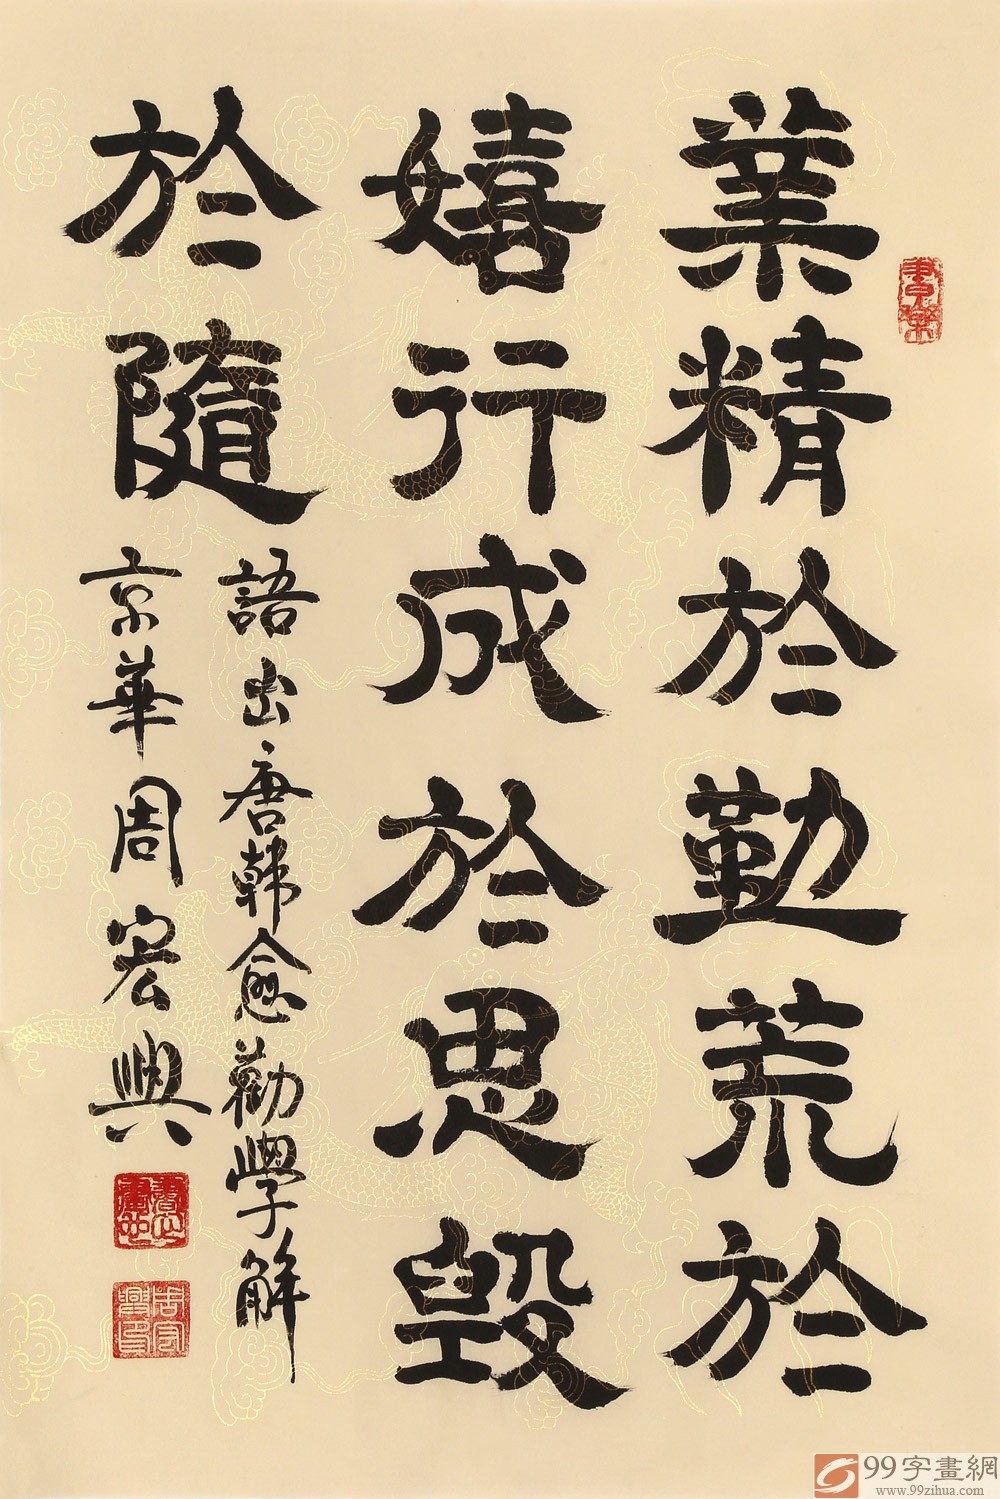 業精於勤荒於
嬉行成於思毀
於隨
語出唐韓愈勸學解
京華周宏興
99字畫網
www.99zihua.com